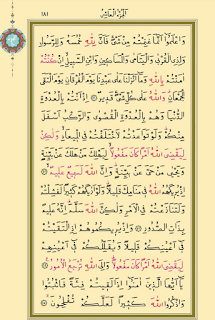 ١٨١ الجزء العاشر
وَاعْلَمُٓوا اَنَّمَا غَنِمْتُمْ مِنْ شَيْءٍ فَاَنَّ لِلّٰهِ خُمُسَهُ وَلِلرَّسُولِ
وَلِذِي الْقُرْبٰى وَالْيَتَامٰى وَالْمَسَاكِينِ وَابْنِ السَّبِيلِ اِنْ كُنْتُمْ
اٰمَنْتُمْ بِاللّٰهِ وَمَٓا اَنْزَلْنَا عَلٰى عَبْدِنَا يَوْمَ الْفُرْقَانِ يَوْمَ الْتَقَى
الْجَمْعَانِ وَاللّٰهُ عَلٰى كُلِّ شَيْءٍ قَدِيرٌ اِذْ اَنْتُمْ بِالْعُدْوَةِ
الدُّنْيَا وَهُمْ بِالْعُدْوَةِ الْقُصْوٰى وَالرَّكْبُ اَسْفَلَ
مِنْكُمْ وَلَوْ تَوَاعَدْتُمْ لَاخْتَلَفْتُمْ فِي الْمِيعَادِ وَلٰكِنْ
لِيَقْضِيَ اللّٰهُ اَمْرًا كَانَ مَفْعُولًا لِيَهْلِكَ مَنْ هَلَكَ عَنْ بَيِّنَةٍ
وَيَحْيٰى مَنْ حَيَّ عَنْ بَيِّنَةٍ وَاِنَّ اللّٰهَ لَسَمِيعٌ عَلِيمٌ
اِذْ يُرِيكَهُمُ اللّٰهُ فِي مَنَامِكَ قَلِيلًا وَلَوْ اَرٰيكَهُمْ كَثِيرًا لَفَشِلْتُمْ
وَلَتَنَازَعْتُمْ فِي الْاَمْرِ وَلٰكِنَّ اللّٰهَ سَلَّمَ اِنَّهُ عَلِيمٌ
بِذَاتِ الصُّدُورِ وَاِذْ يُرِيكُمُوهُمْ اِذِ الْتَقَيْتُمْ
فِٓي اَعْيُنِكُمْ قَلِيلًا وَيُقَلِّلُكُمْ فِٓي اَعْيُنِهِمْ
لِيَقْضِيَ اللّٰهُ اَمْرًا كَانَ مَفْعُولًا وَاِلَى اللّٰهِ تُرْجَعُ الْاُمُورُ
يَٓا اَيُّهَا الَّذِينَ اٰمَنُٓوا اِذَا لَقِيتُمْ فِئَةً فَاثْبُتُوا
وَاذْكُرُوا اللّٰهَ كَثِيرًا لَعَلَّكُمْ تُفْلِحُونَ